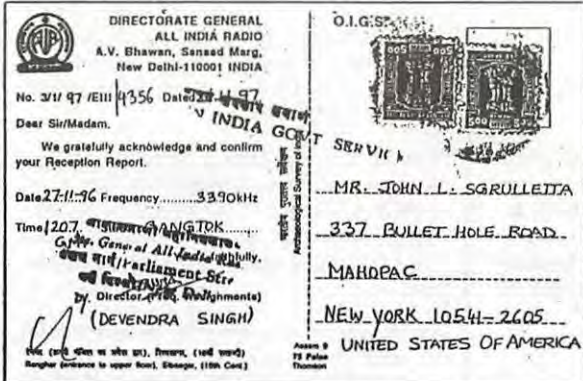 DIRECTORATE GENERAL
ALL INDIA RADIO
A.V. Bhawan, Sansad Marg,
New Delhi-110001 INDIA
No. 3/1/ 97 /EIII 9356 Dated 97
Dear Sir/Madam.
We gratefully acknowledge and confirm
your Reception Report.
Date 27-11-96 Frequency 3390kHz
Time 1207 GANGTOK
General All India
मार्ग/Parliament Str
Director (Freq. Assignments)
(DEVENDRA SINGH)
Rangher (entrance to upper floor), Sibsagar, (18th Cent.)
INDIA GOVT SERVICE
Archaeological Survey of India
Assam 9
75 Paise
Thomson
O.I.G.S.
500
500
MR. JOHN L. SGRULLETTA
337 BULLET HOLE ROAD
MAHOPAC
NEW YORK 10541-2605
UNITED STATES OF AMERICA